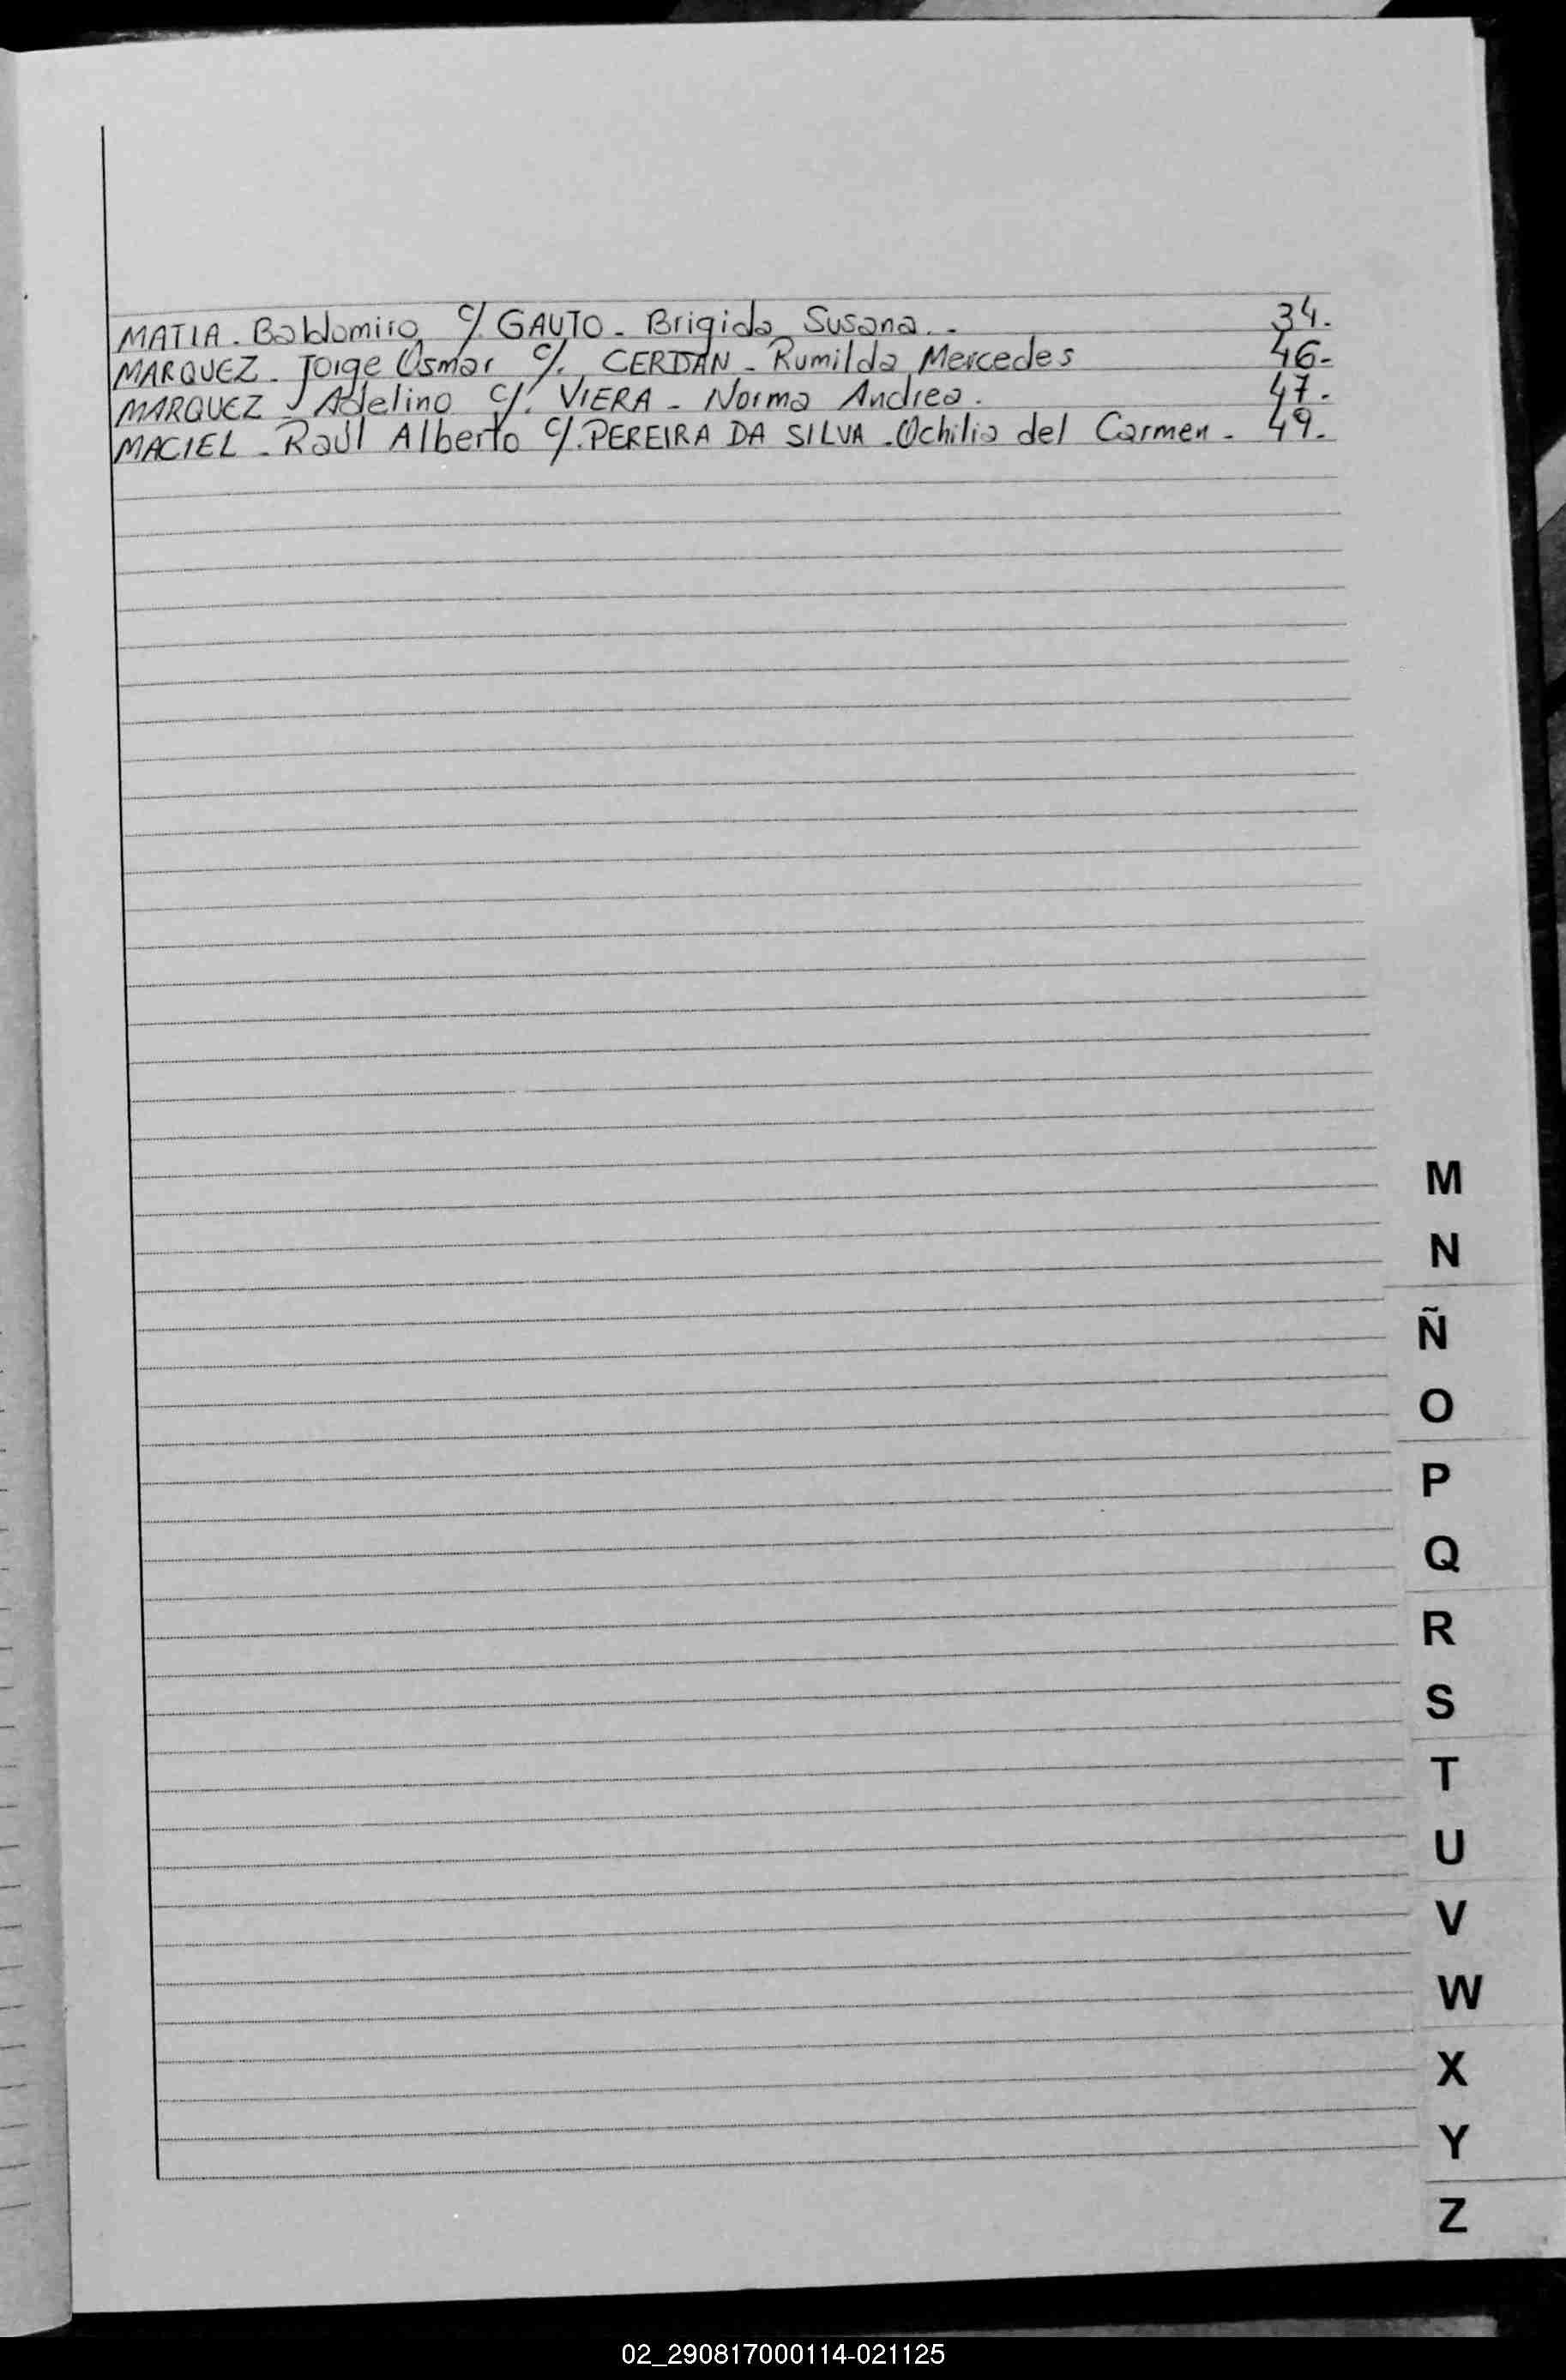 MATIA - Baldomiro c/ GAUTO - Brigida Susana - 34.
MARQUEZ - Jorge Osmar c/. CERDAN - Rumilda Mercedes 46-
MARQUEZ - Adelino c/. VIERA - Norma Andrea. 47.
MACIEL - Raúl Alberto c/. PEREIRA DA SILVA - Ochilia del Carmen - 49.
M
N
Ñ
O
P
Q
R
S
T
U
V
W
X
Y
Z
02_290817000114-021125